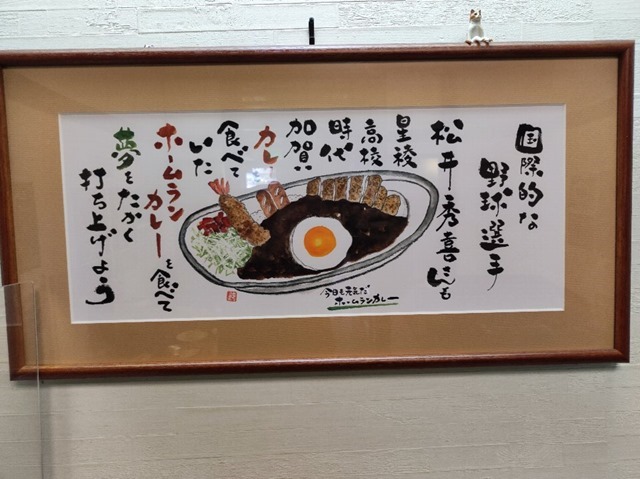 国際的な
野球選手
松井秀喜さんも
星稜
高校
時代
加賀
カレー
食べて
いた
ホームラン
カレーを食べて
夢をたかく
打ち上げよう
今日も元気だ
ホームランカレー